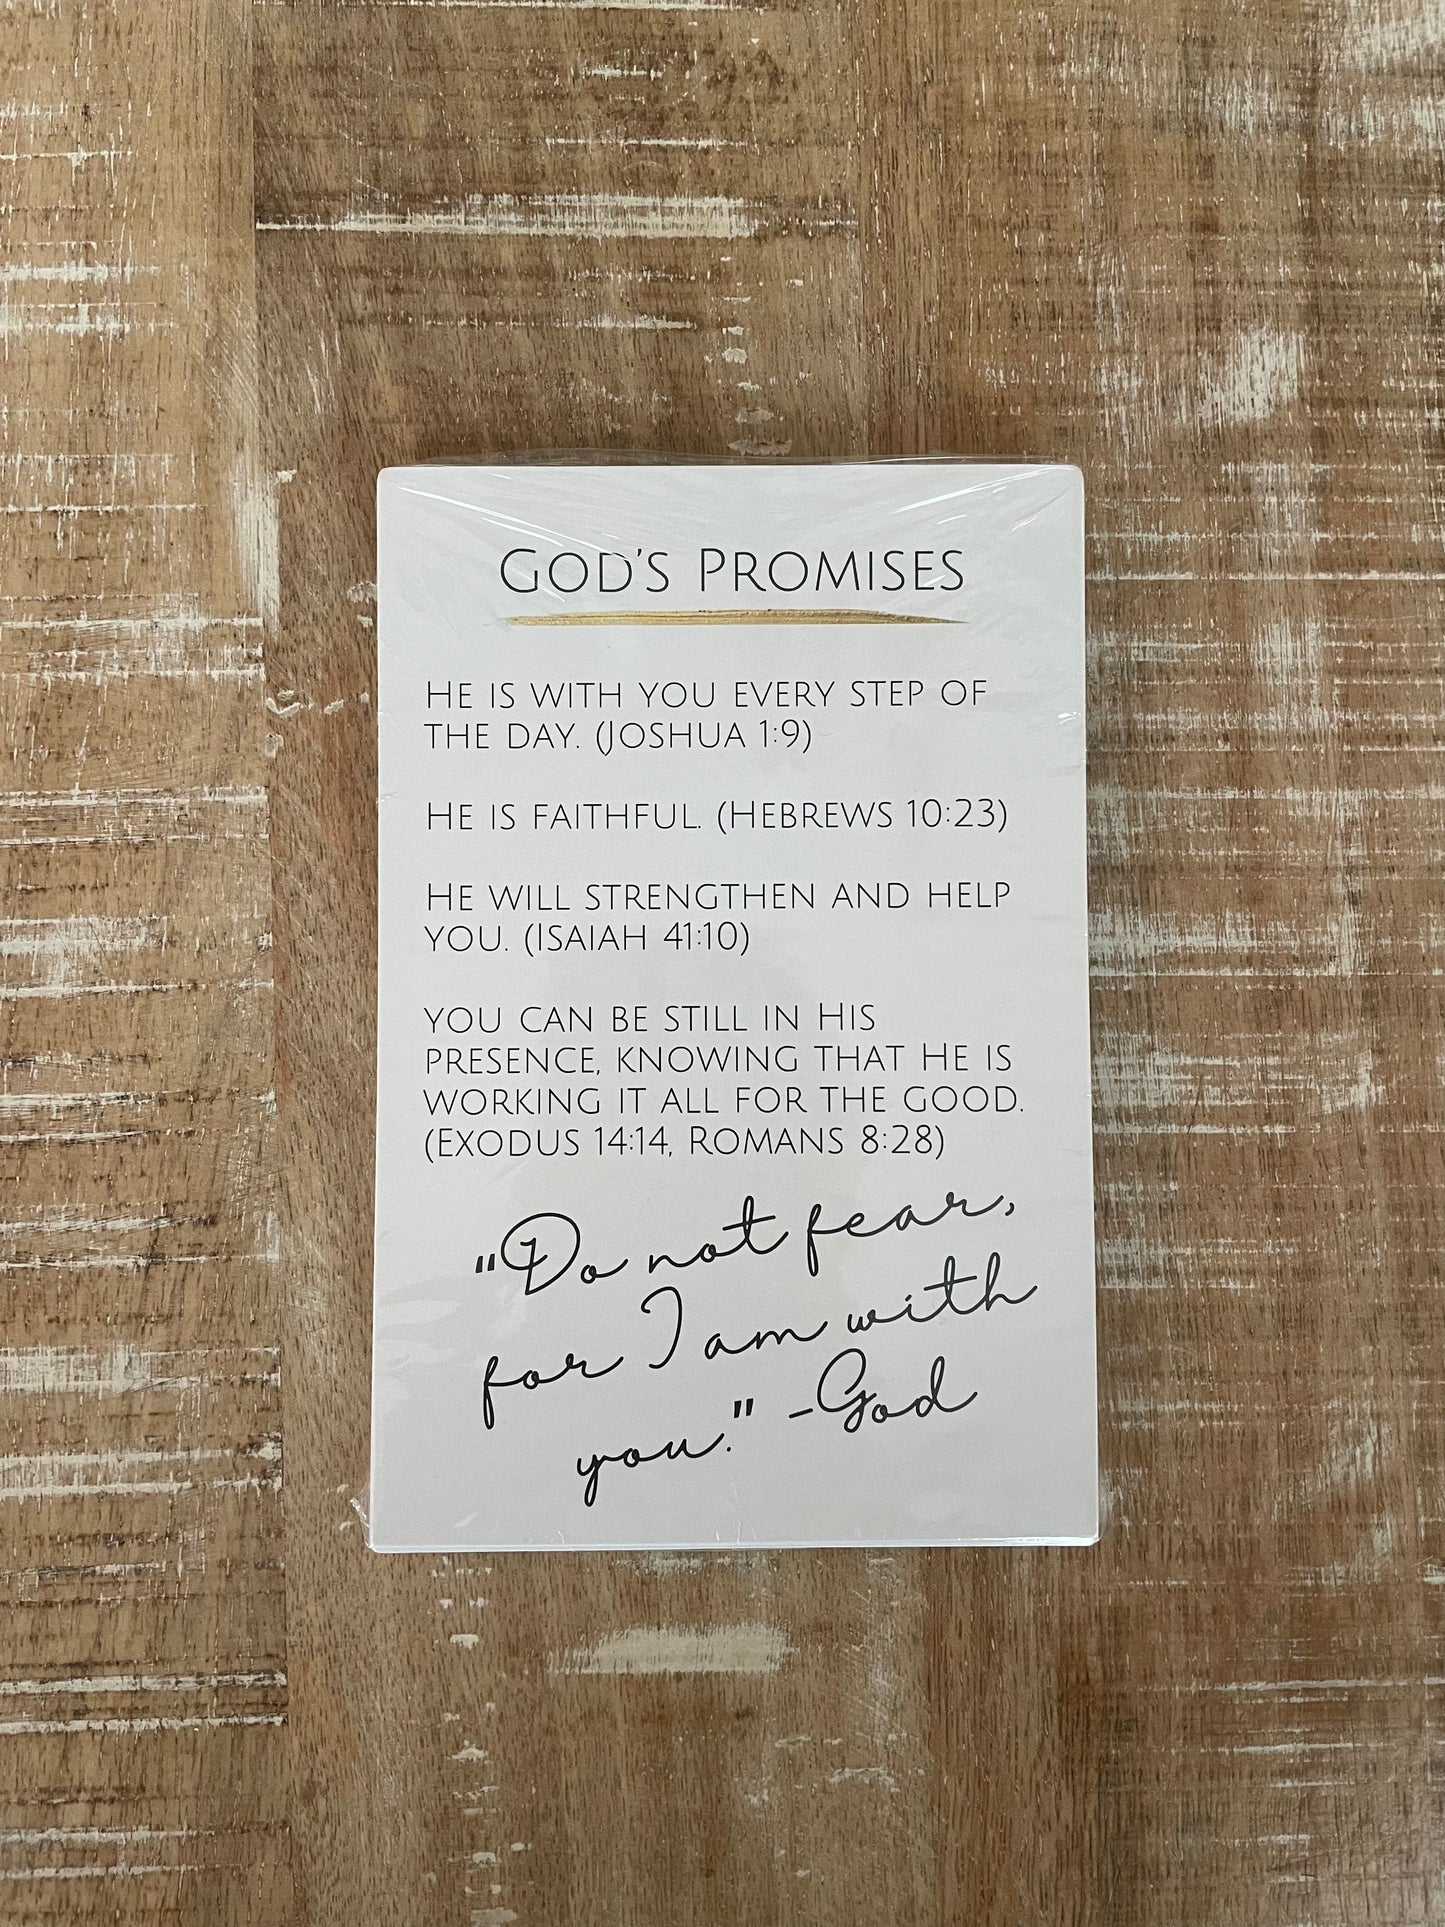 God's Promises
He is with you every step of
the day. (Joshua 1:9)
He is faithful. (Hebrews 10:23)
He will strengthen and help
you. (Isaiah 41:10)
you can be still in His
presence, knowing that He is
working it all for the good.
(Exodus 14:14, Romans 8:28)
"Do not fear,
for I am with
you." -God